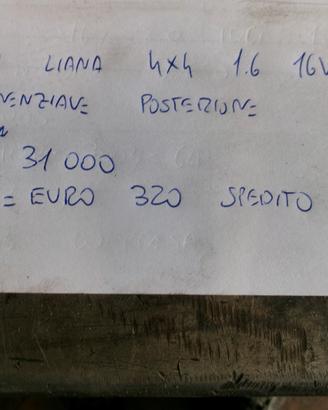 LIANA 4x4 1.6 16V
ENZIALE POSTERIORE
31 000
= EURO 320 SPEDITO